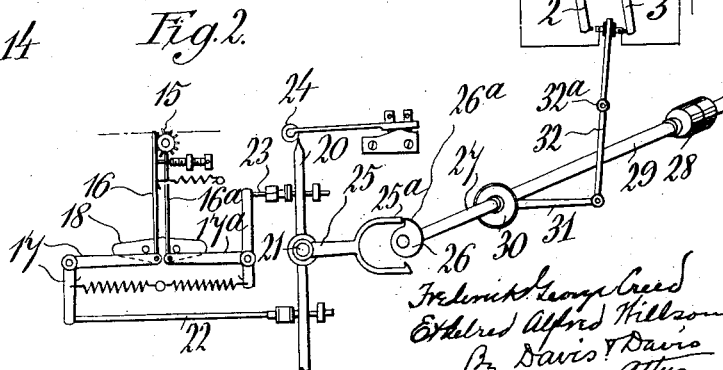 14
Fig. 2.
2
3
15
24
26a
32a
20
27
32
16
23
25
29
28
16a
25a
18
17a
17
21
26
30
31
22
Frederick George Creed
Ethelred Alfred Willson
By Davis & Davis
Attys